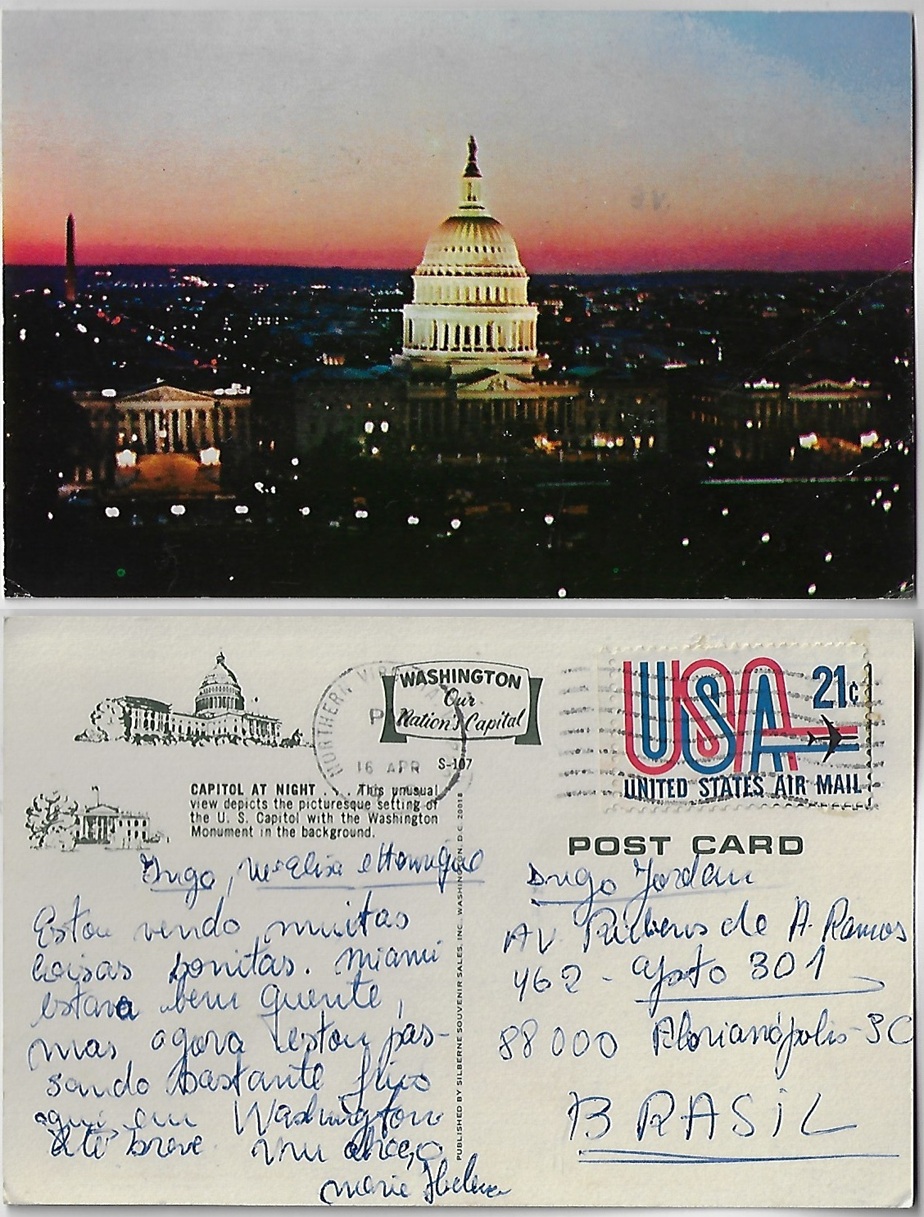 NORTHERN VIRGINIA
P
16 APR
WASHINGTON
Our
Nation's Capital
S-107
USA 21c
UNITED STATES AIR MAIL
CAPITOL AT NIGHT . . . This unusual
view depicts the picturesque setting of
the U. S. Capitol with the Washington
Monument in the background.
POST CARD
PUBLISHED BY SILBERNE SOUVENIR SALES, INC. WASHINGTON, D.C. 20018
Ingo, Mª Elisa e Henrique
Estou vendo muitas
coisas bonitas. Miami
estava bem quente,
mas agora estou pas-
sando bastante frio
aqui em Washington
até breve. um abraço
Maria Helena
Ingo Jordan
AV Rubens de A. Ramos
462 - apto 301
88000 Florianópolis-SC
BRASIL